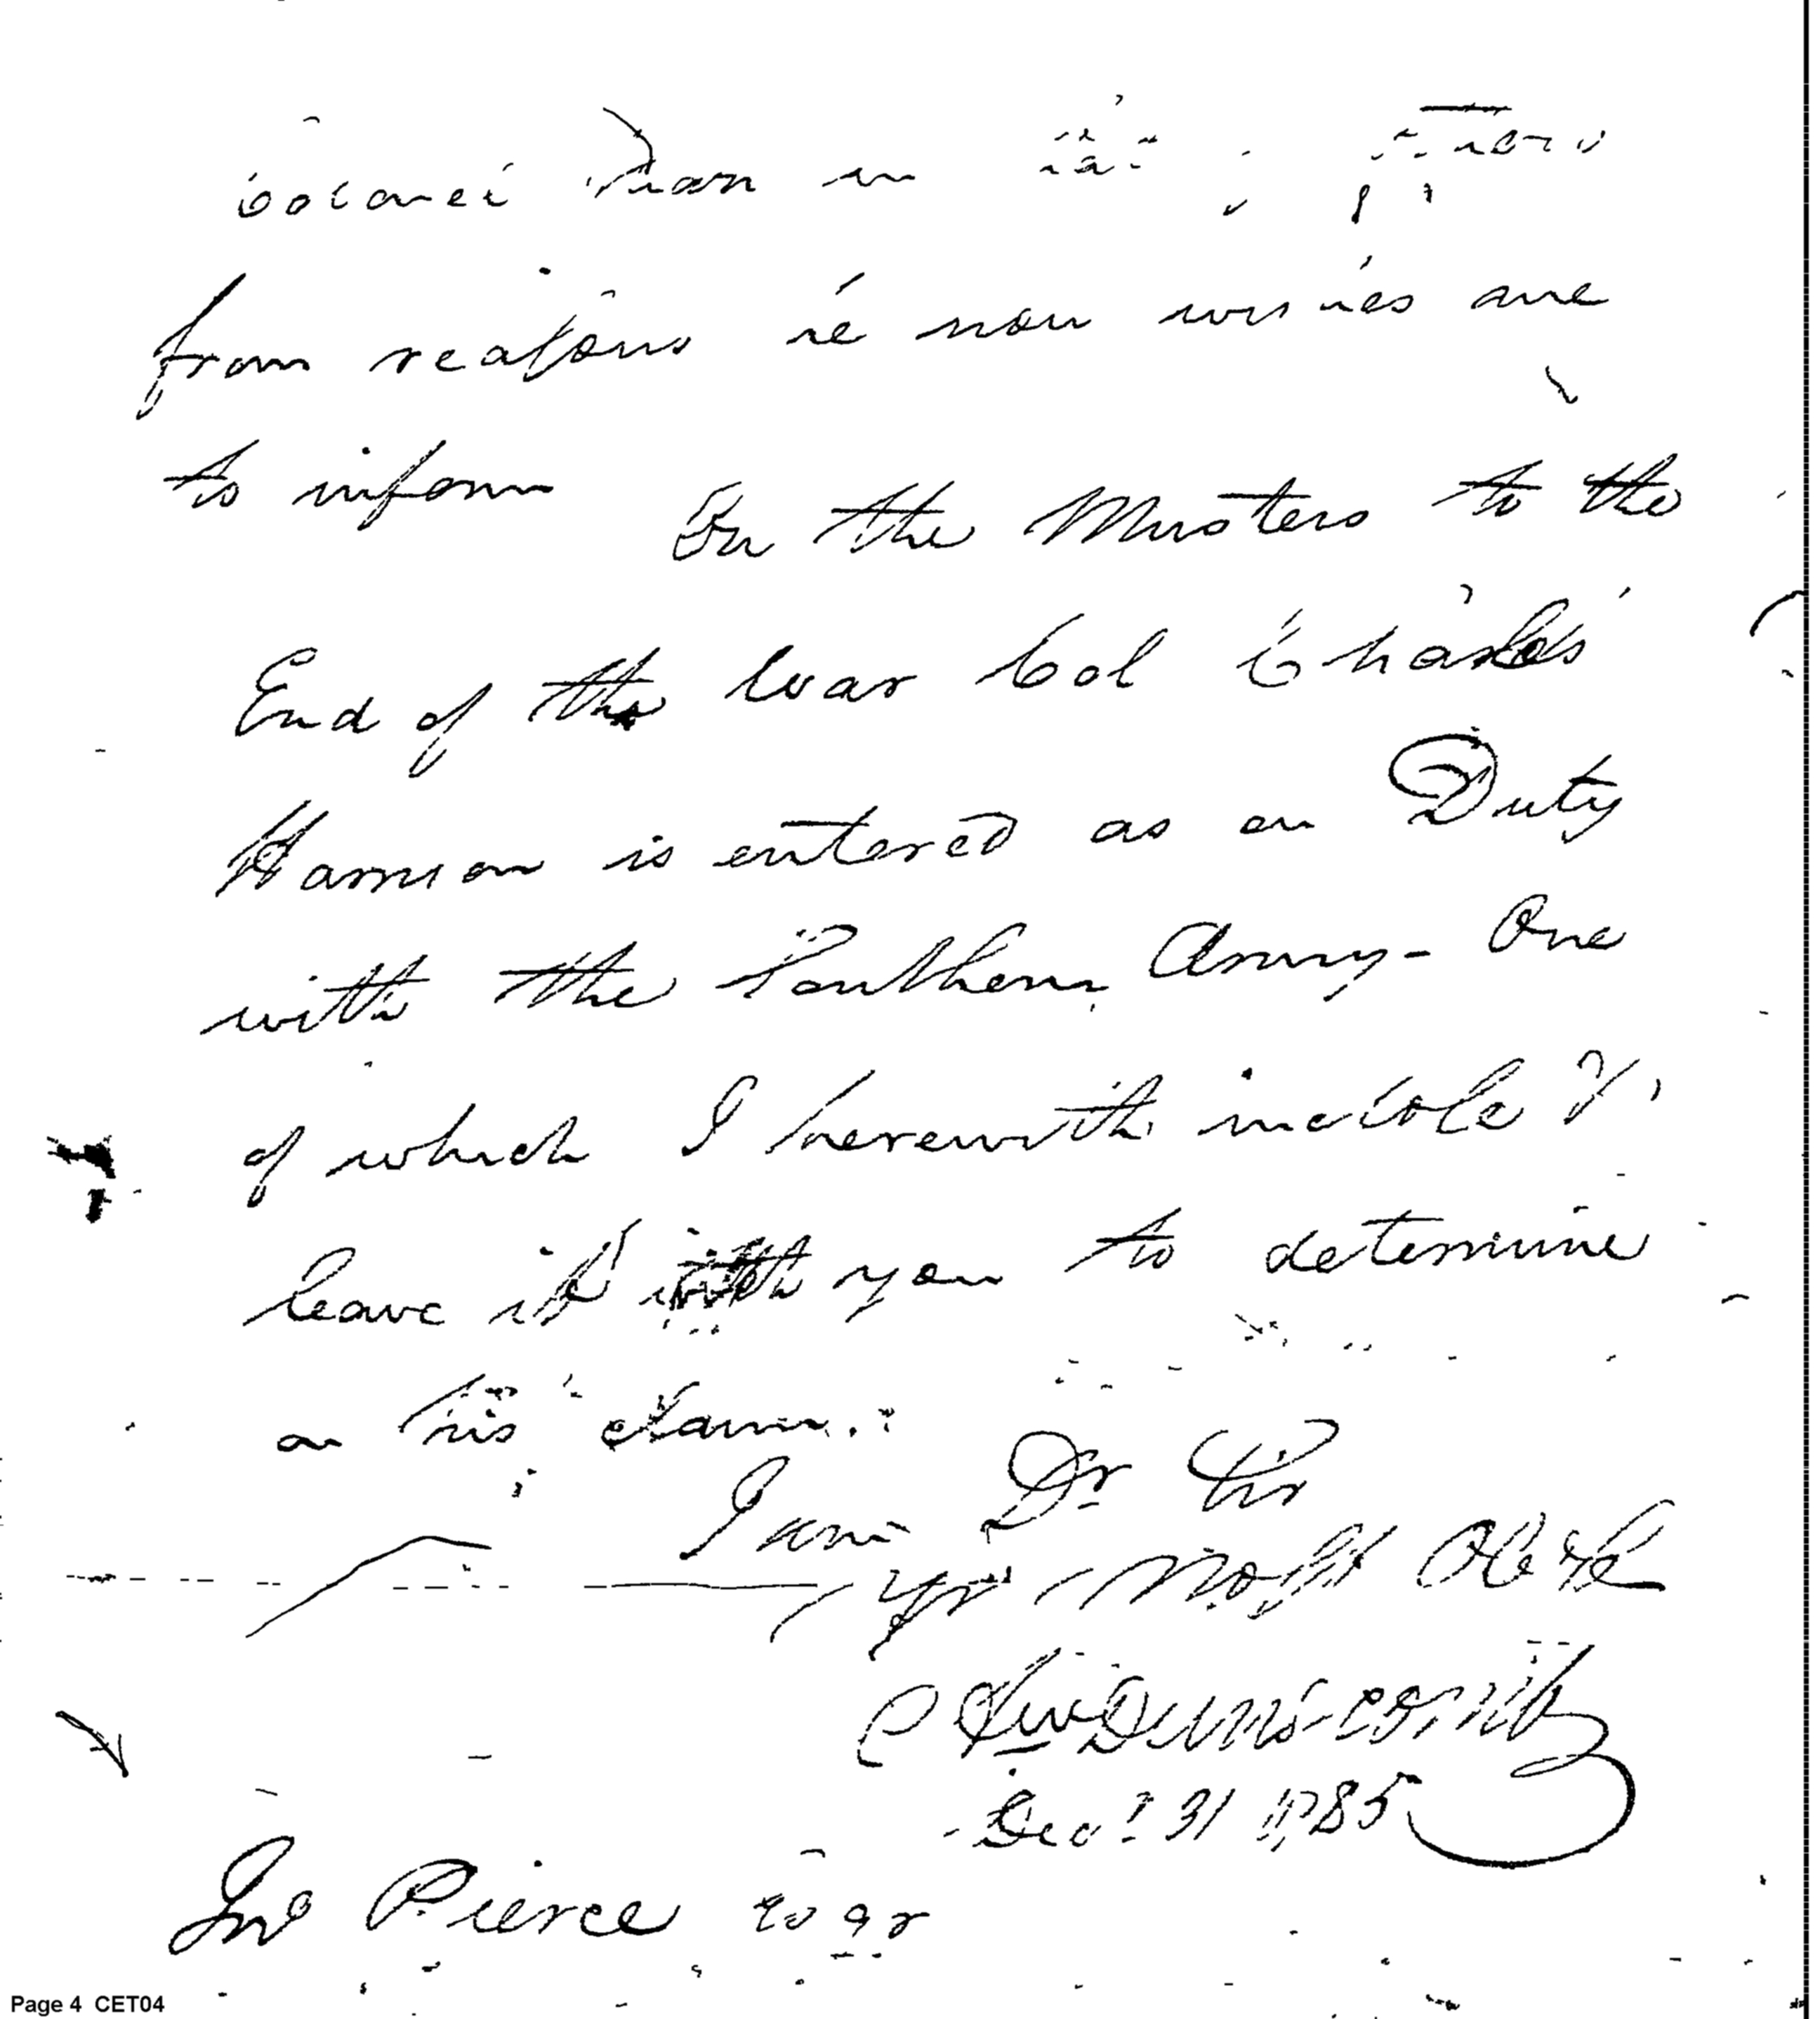 Colonel than in
from reasons he now wishes me
to inform On the Musters to the
End of the War Col Charles
Harrison is entered as on Duty
with the Southern Army - One
of which I herewith inclose &
leave it with you to determine
on his claim.
I am Dr Sir
Yr Most Ob
Dunscomb
Dec. 31 1785
Jno Pierce Esqr
Page 4 CET04